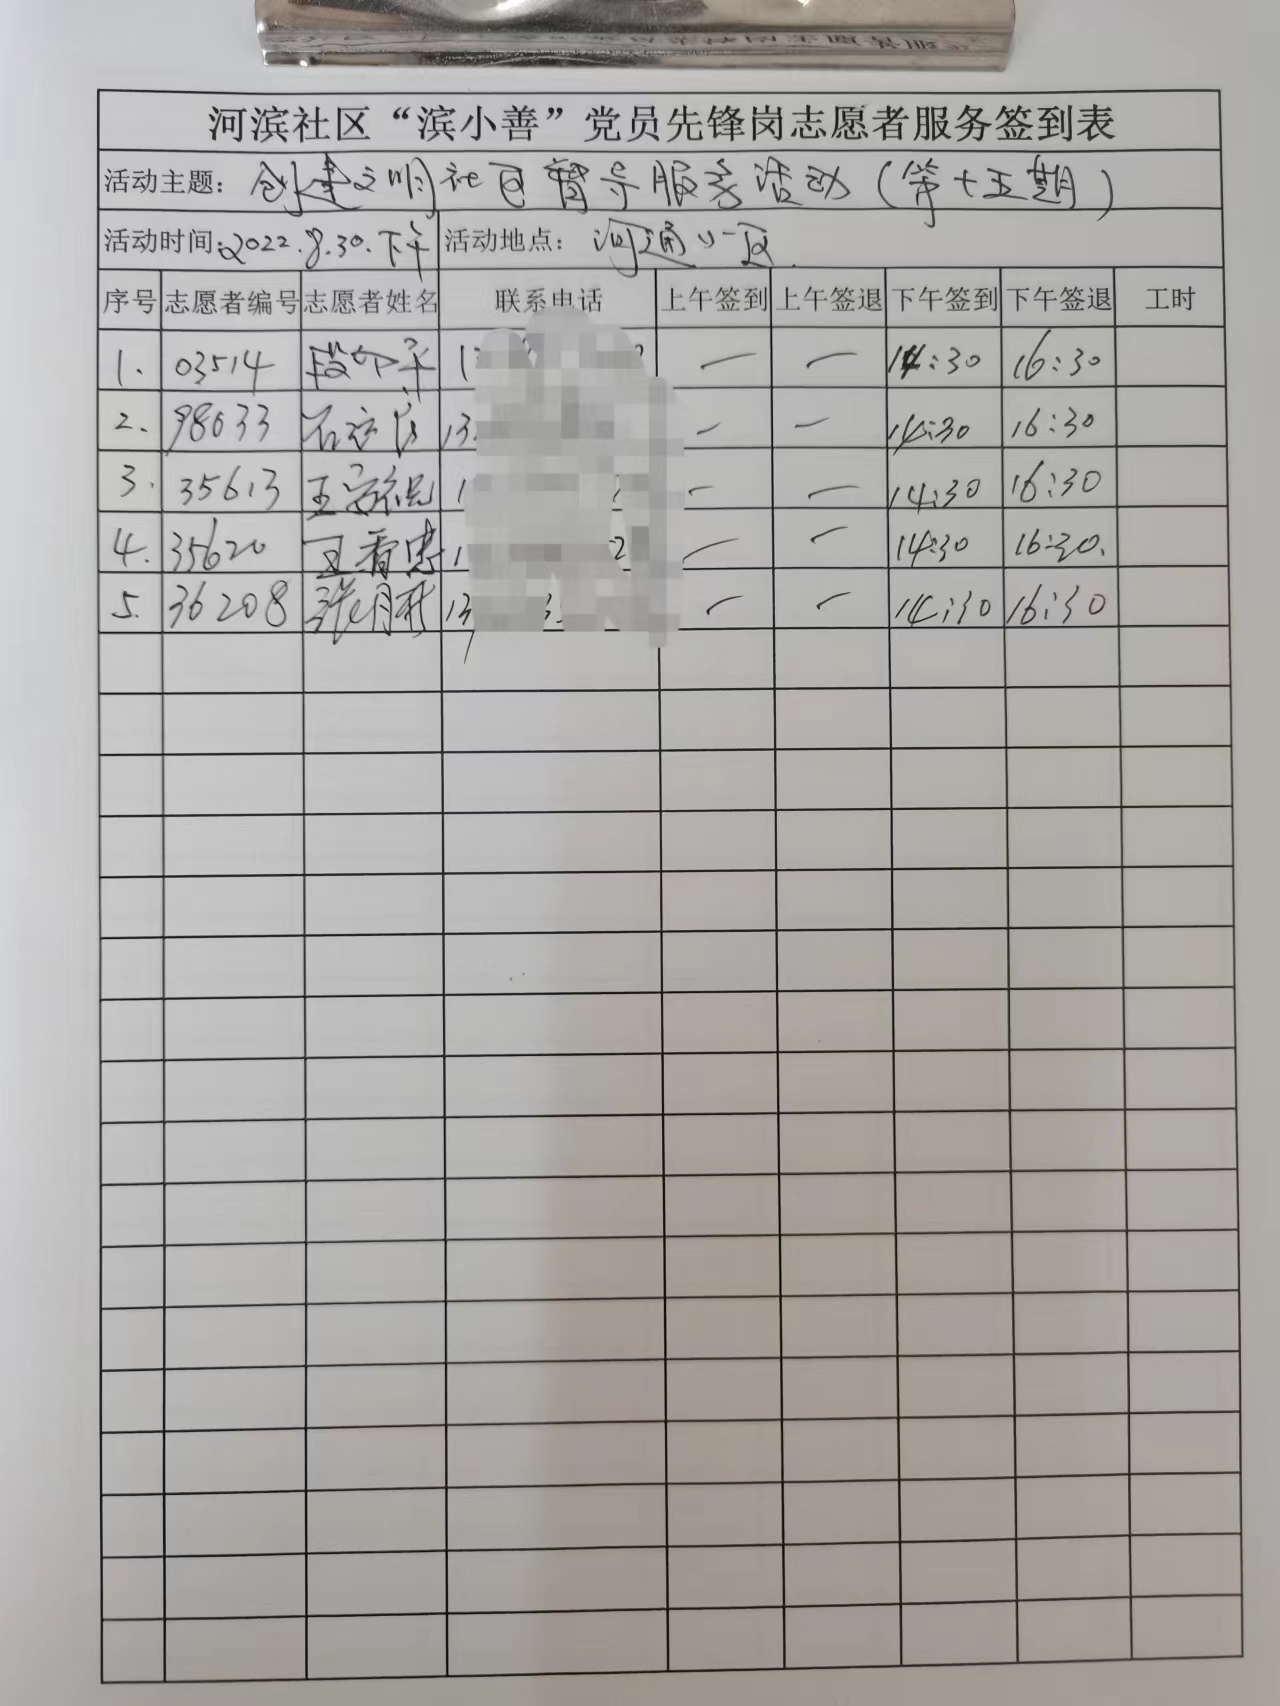 河滨社区“滨小善”党员先锋岗志愿者服务签到表
活动主题：创建文明社区督导服务活动（第十五期）
活动时间：2022.8.30.下午 活动地点：河通小区
序号 志愿者编号 志愿者姓名 联系电话 上午签到 上午签退 下午签到 下午签退 工时
1. 03514 — — 14:30 16:30
2. 98033 13 — — 14:30 16:30
3. 35613 王 1 — — 14:30 16:30
4. 35620 王看忠 1 — — 14:30 16:30.
5. 36208 张月 13 — — 14:30 16:30